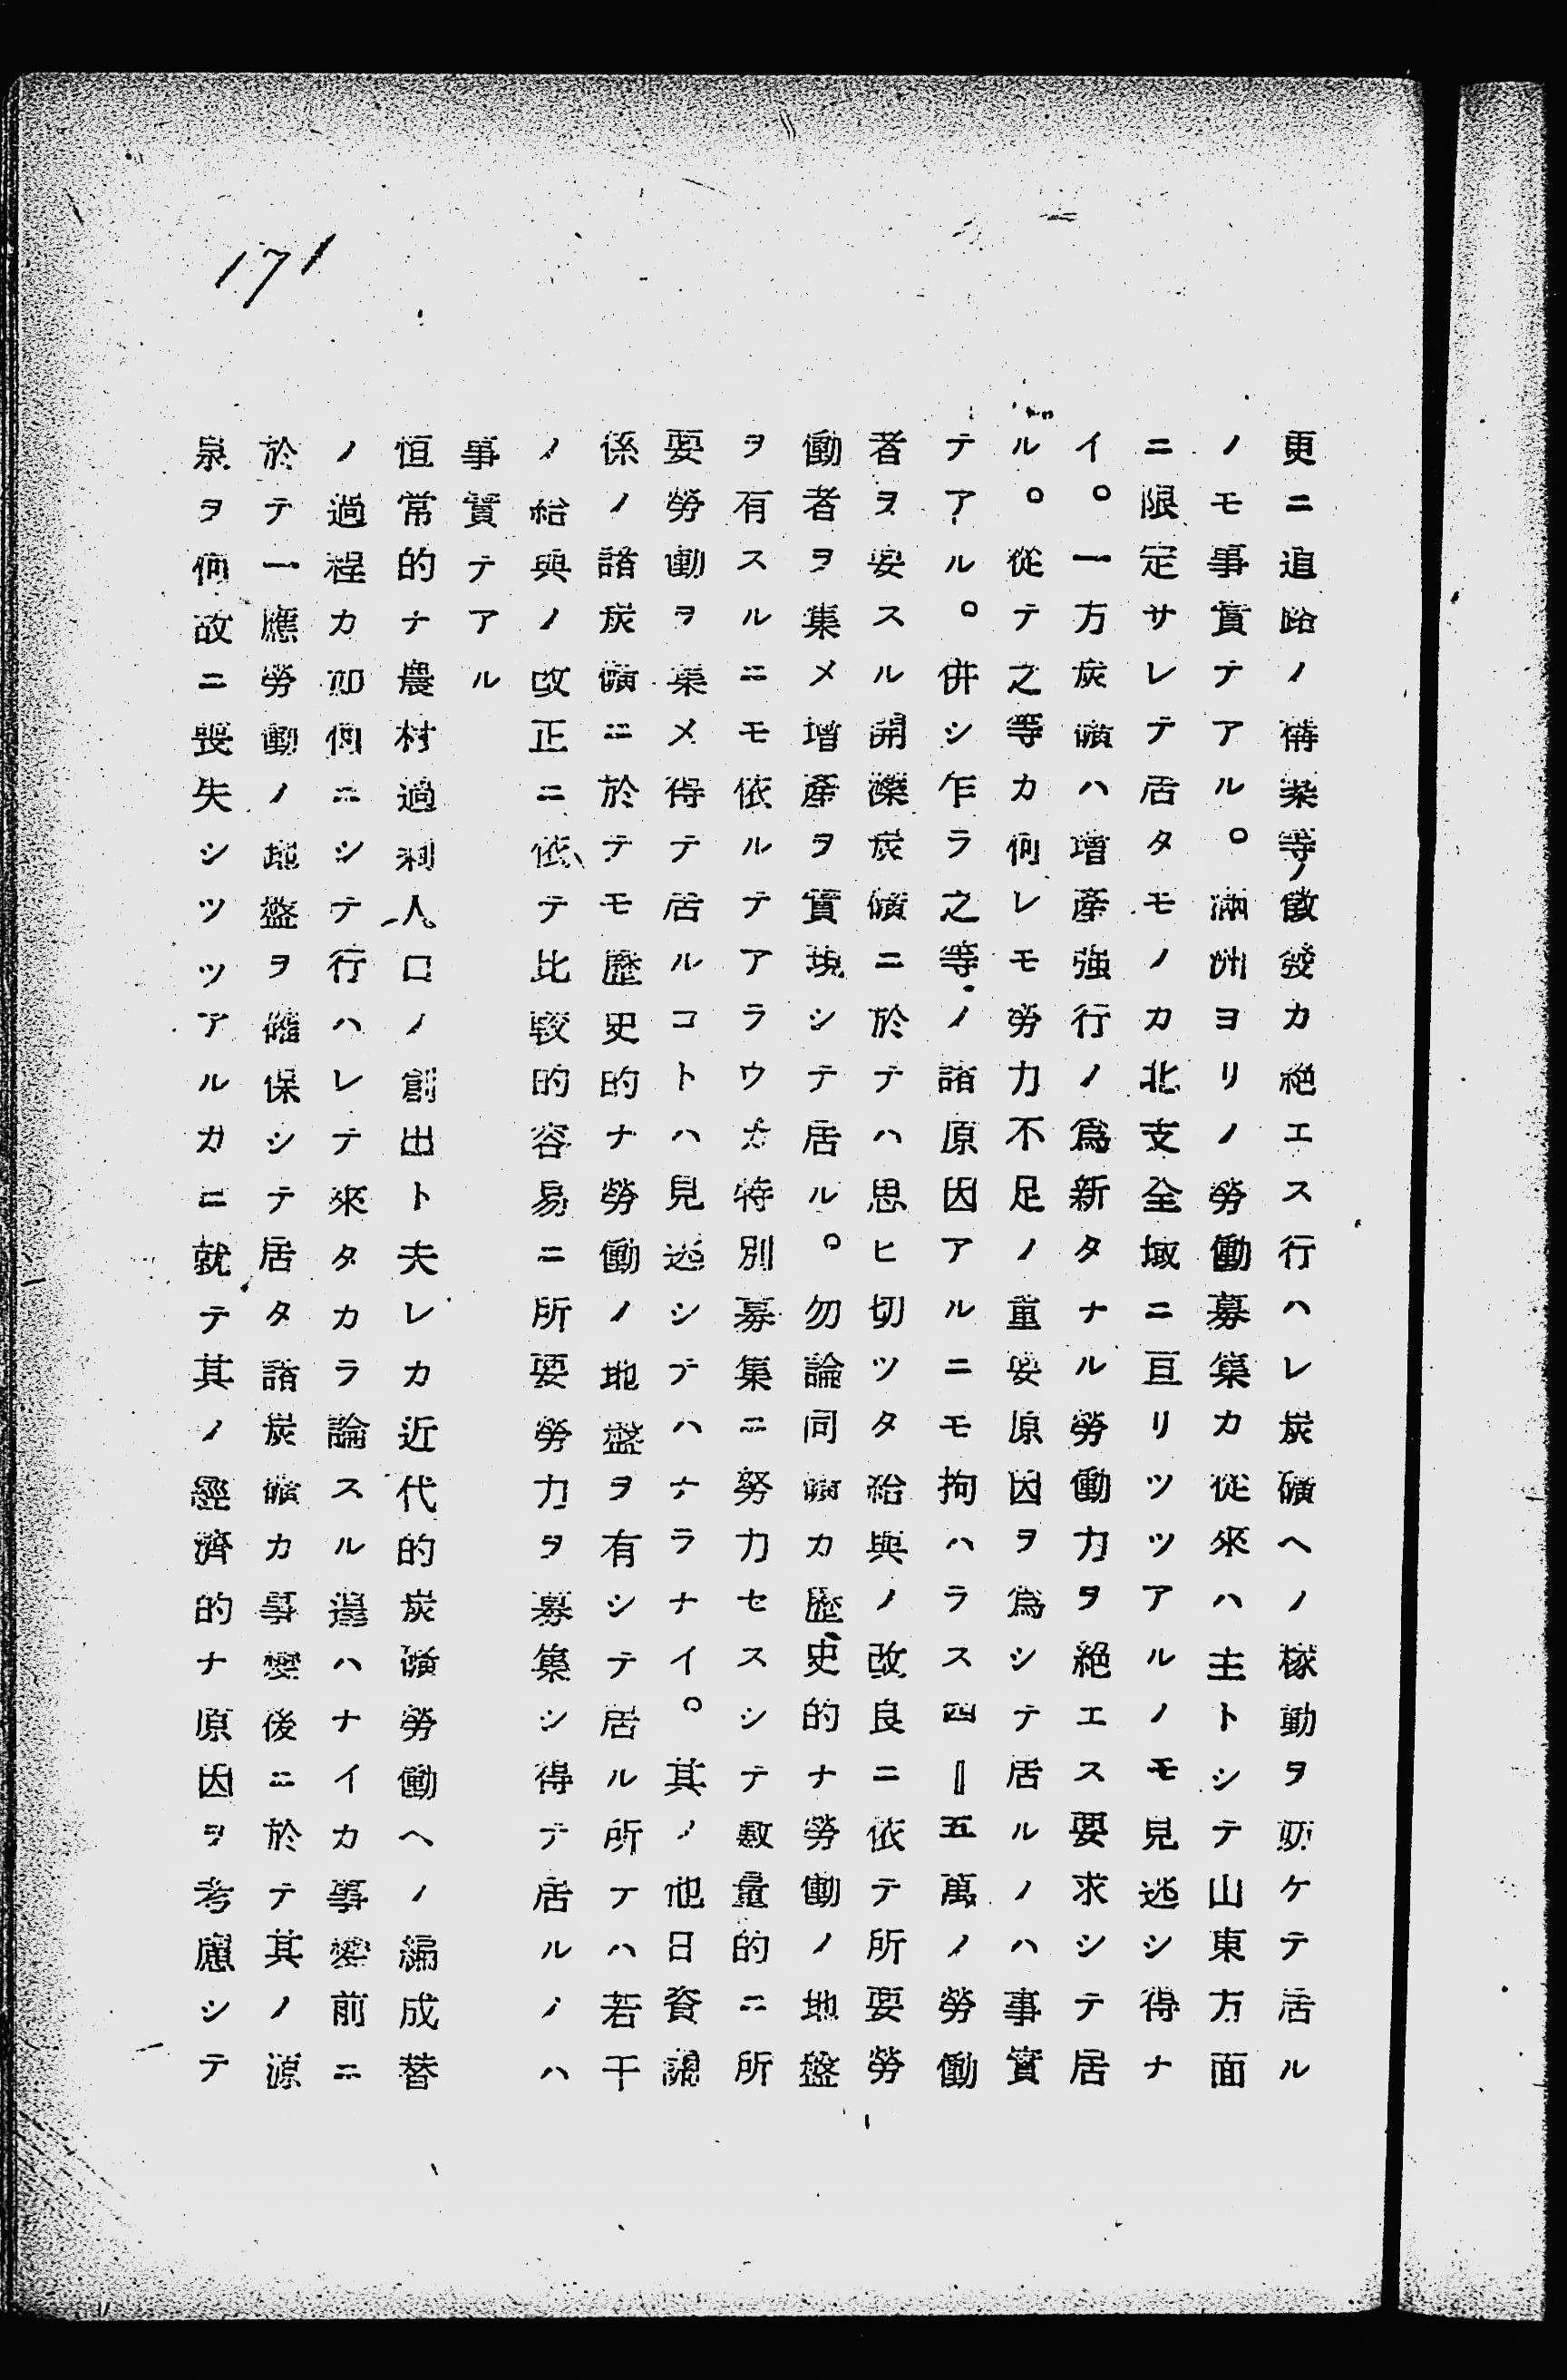 171
更ニ道路ノ構築等ノ徴發カ絶エス行ハレ炭礦ヘノ稼動ヲ妨ケテ居ル
ノモ事實テアル。滿洲ヨリノ勞働募集カ從來ハ主トシテ山東方面
ニ限定サレテ居タモノカ北支全域ニ亘リツツアルノモ見逃シ得ナ
イ。一方炭礦ハ增產強行ノ爲新タナル勞働力ヲ絶エス要求シテ居
ル。從テ之等カ何レモ勞力不足ノ重要原因ヲ爲シテ居ルノハ事實
テアル。併シ乍ラ之等ノ諸原因アルニモ拘ハラス四‖五萬ノ勞働
者ヲ要スル開灤炭礦ニ於テハ思ヒ切ツタ給與ノ改良ニ依テ所要勞
働者ヲ集メ增產ヲ實現シテ居ル。勿論同礦カ歷史的ナ勞働ノ地盤
ヲ有スルニモ依ルテアラウカ特別募集ニ努力セスシテ數量的ニ所
要勞働ヲ集メ得テ居ルコトハ見逃シテハナラナイ。其ノ他日資關
係ノ諸炭礦ニ於テモ歷史的ナ勞働ノ地盤ヲ有シテ居ル所テハ若干
ノ給與ノ改正ニ依テ比較的容易ニ所要勞力ヲ募集シ得テ居ルノハ
事實テアル
恒常的ナ農村過剩人口ノ創出ト夫レカ近代的炭礦勞働ヘノ編成替
ノ過程カ如何ニシテ行ハレテ來タカラ論スル遑ハナイカ事變前ニ
於テ一應勞働ノ地盤ヲ確保シテ居タ諸炭礦カ事變後ニ於テ其ノ源
泉ヲ何故ニ喪失シツツアルカニ就テ其ノ經濟的ナ原因ヲ考慮シテ